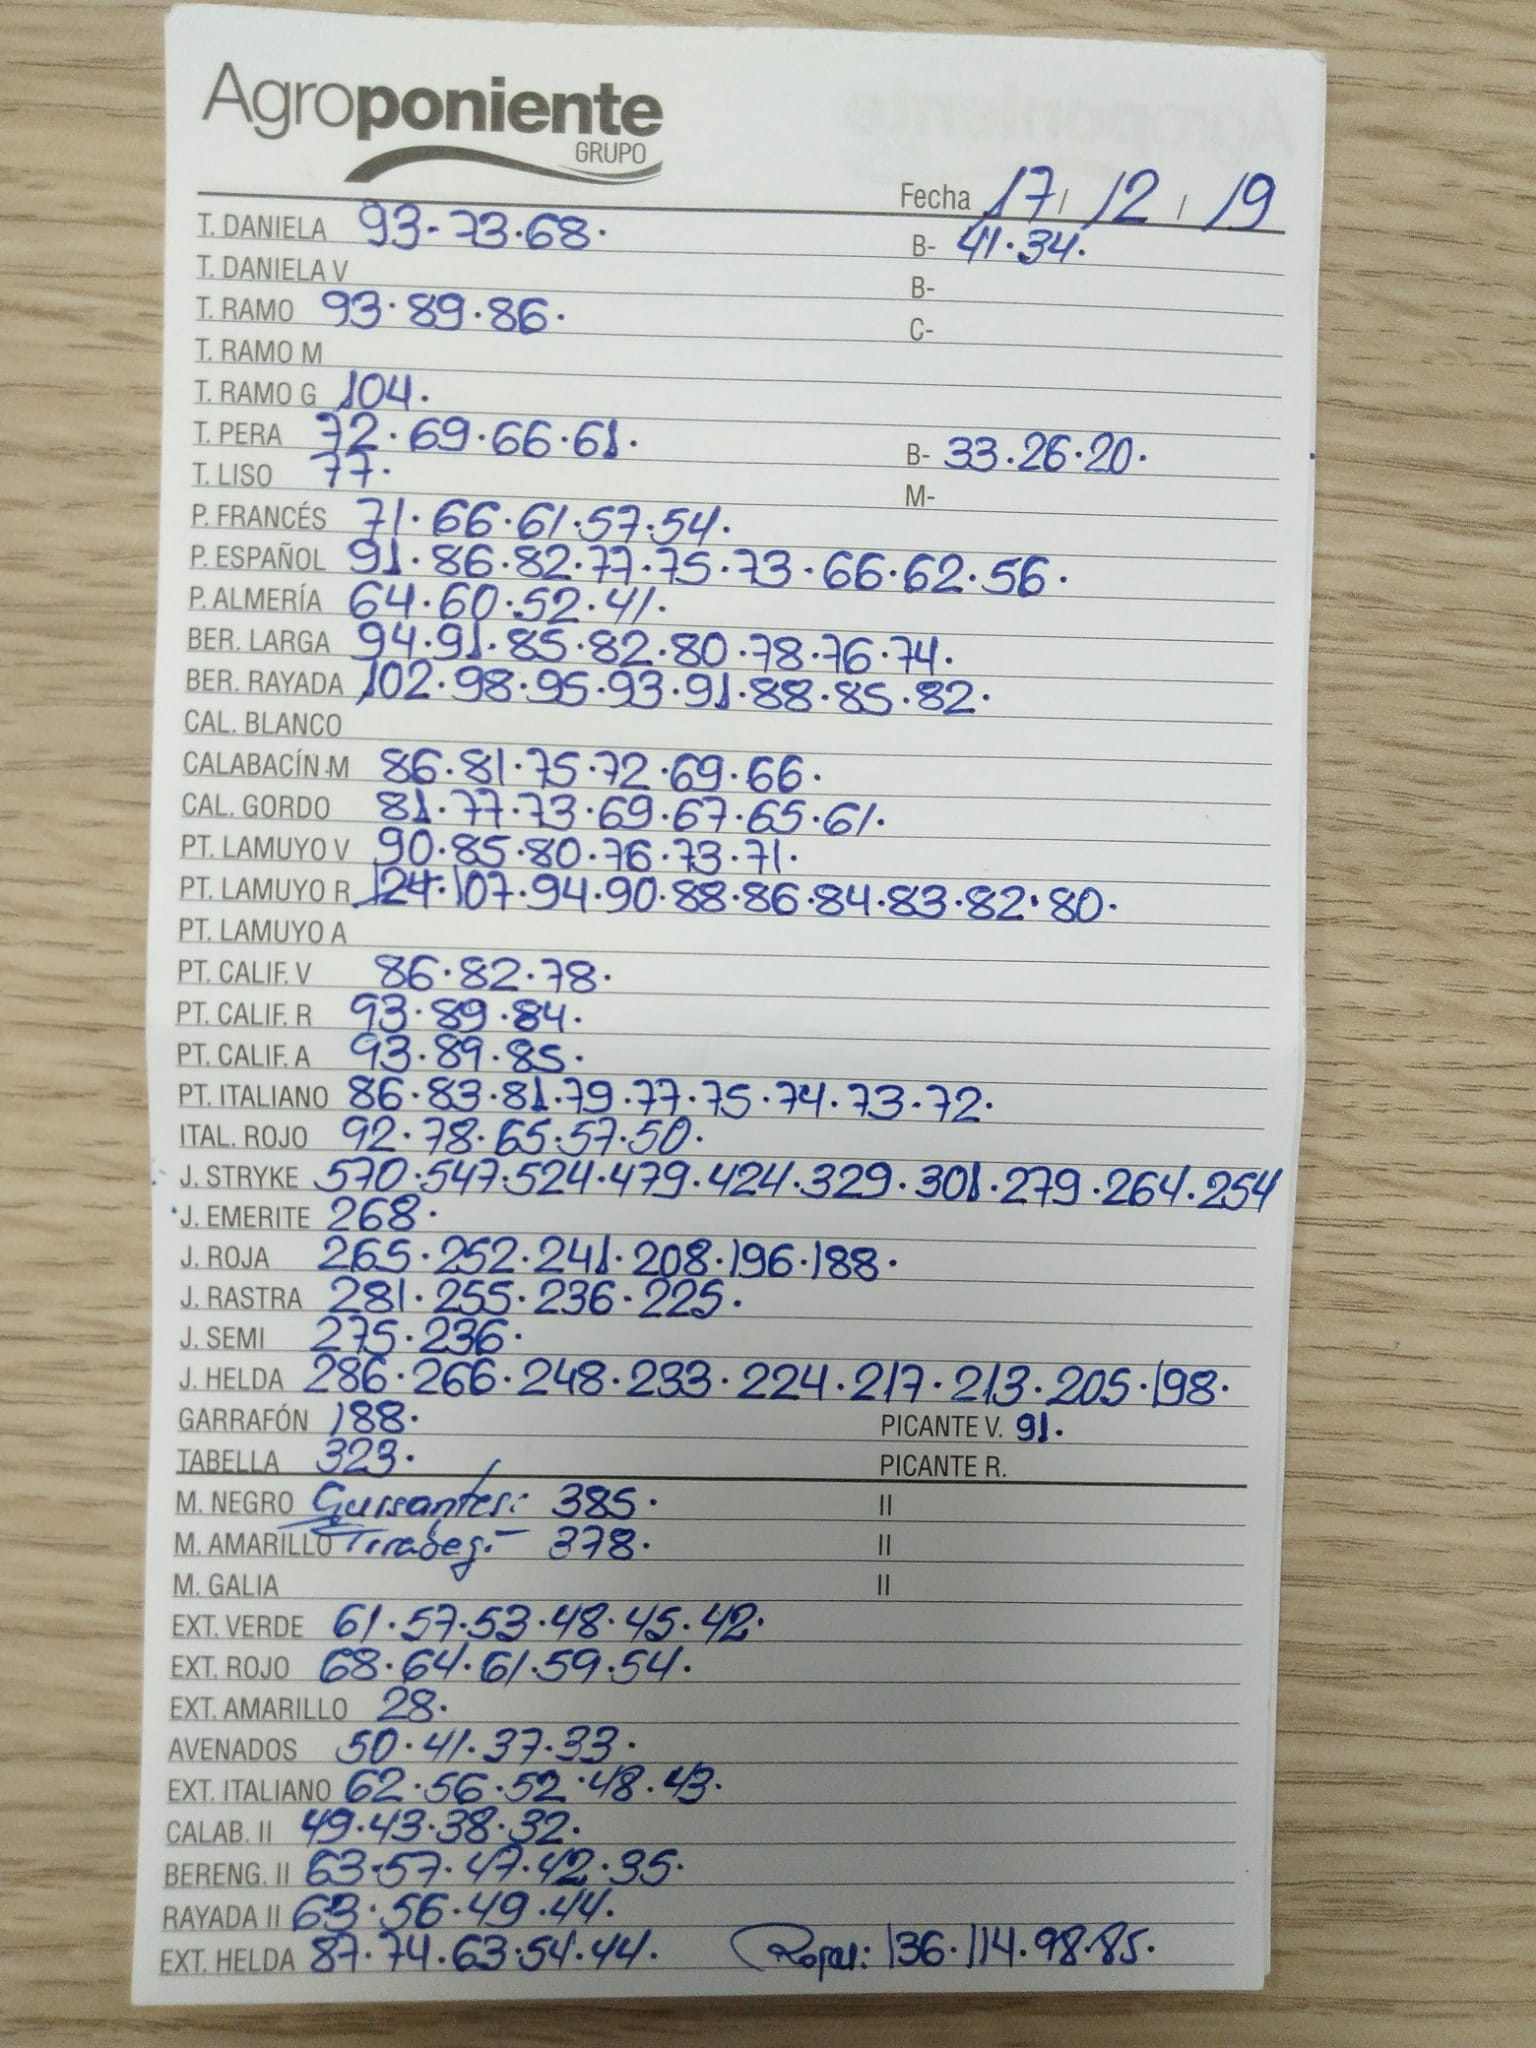 Agroponiente
GRUPO
Fecha 17 / 12 / 19
T. DANIELA 93-73.68. B- 41.34.
T. DANIELA V B-
T. RAMO 93.89.86. C-
T. RAMO M
T. RAMO G 104.
T. PERA 72.69.66.61. B- 33.26.20.
T. LISO 77. M-
P. FRANCÉS 71.66.61.57.54.
P. ESPAÑOL 91.86.82.77.75.73.66.62.56.
P. ALMERÍA 64.60.52.41.
BER. LARGA 94.91.85.82.80.78.76.74.
BER. RAYADA 102.98.95.93.91.88.85.82.
CAL. BLANCO
CALABACÍN.M 86.81.75.72.69.66.
CAL. GORDO 81.77.73.69.67.65.61.
PT. LAMUYO V 90.85.80.76.73.71.
PT. LAMUYO R 124.107.94.90.88.86.84.83.82.80.
PT. LAMUYO A
PT. CALIF. V 86.82.78.
PT. CALIF. R 93.89.84.
PT. CALIF. A 93.89.85.
PT. ITALIANO 86.83.81.79.77.75.74.73.72.
ITAL. ROJO 92.78.65.57.50.
J. STRYKE 570.547.524.479.424.329.301.279.264.254
J. EMERITE 268.
J. ROJA 265.252.241.208.196.188.
J. RASTRA 281.255.236.225.
J. SEMI 275.236.
J. HELDA 286.266.248.233.224.217.213.205.198.
GARRAFÓN 188. PICANTE V. 91.
TABELLA 323. PICANTE R.
M. NEGRO Guisantes: 385. II
M. AMARILLO Tirabeq: 378. II
M. GALIA II
EXT. VERDE 61.57.53.48.45.42.
EXT. ROJO 68.64.61.59.54.
EXT. AMARILLO 28.
AVENADOS 50.41.37.33.
EXT. ITALIANO 62.56.52.48.43.
CALAB. II 49.43.38.32.
BERENG. II 63-57.47.42.35.
RAYADA II 63.56.49.44.
EXT. HELDA 87.74.63.54.44. Rojas: 136.114.98.85.